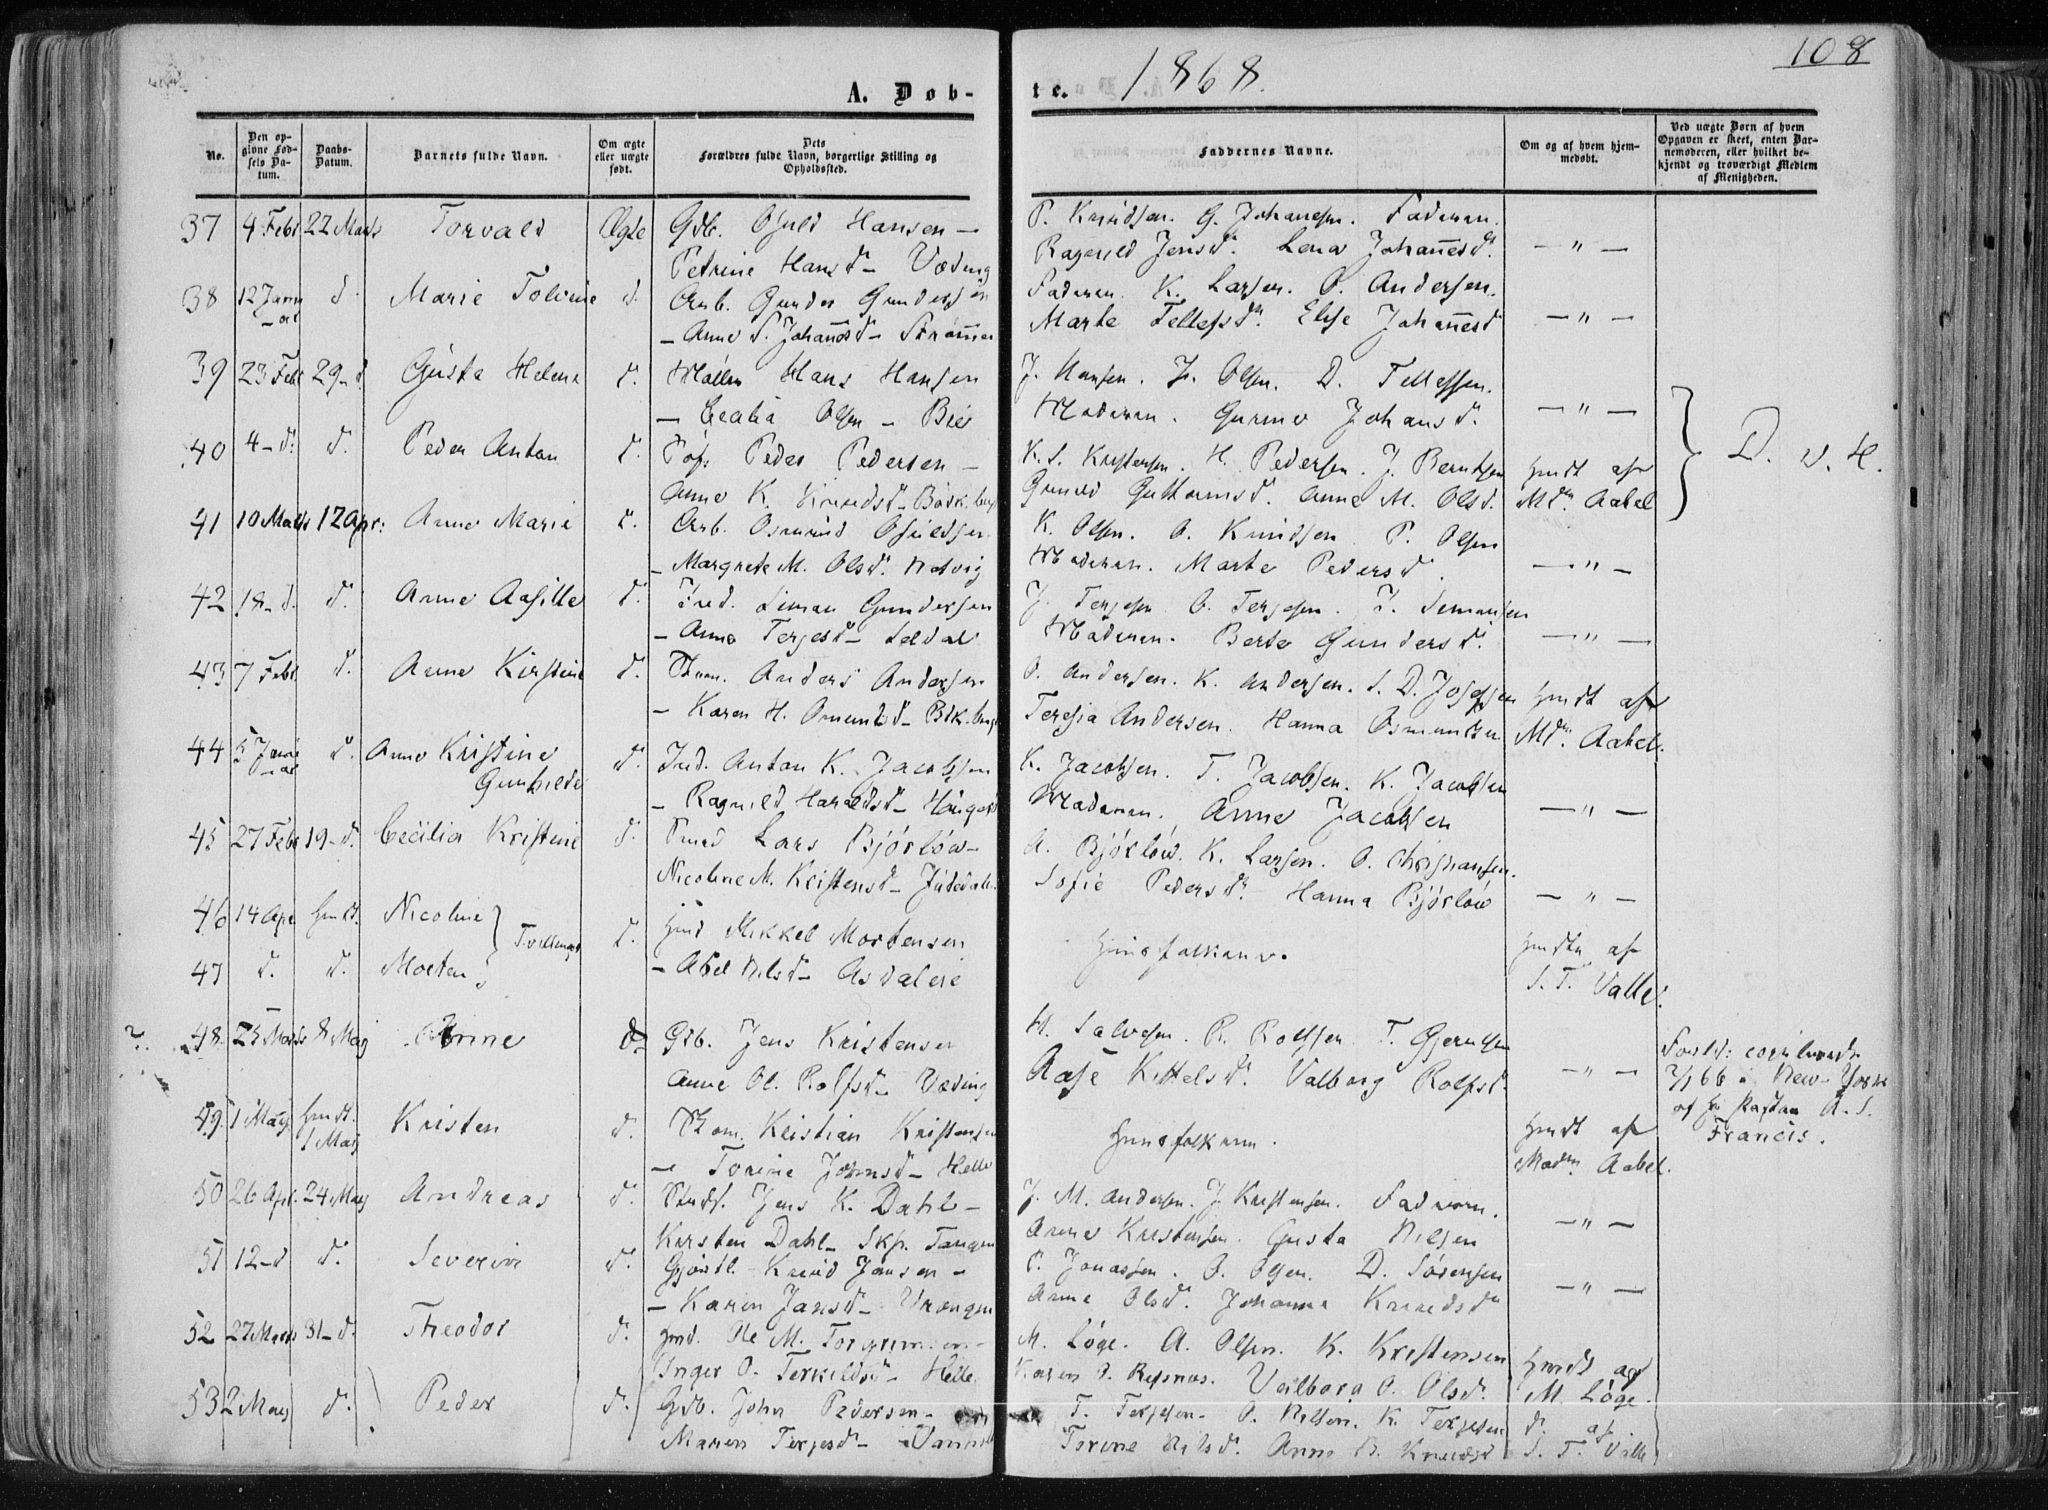 108
A. Døb-
te. 1868.
No.
Den op-
givne Fød-
sels Da-
tum.
Daabs-
Datum.
Barnets fulde Navn.
Om ægte
eller uægte
født.
Dets
Forældres fulde Navn, borgerlige Stilling og
Opholdssted.
Faddernes Navne.
Om og af hvem hjem-
medøbt.
Ved uægte Børn af hvem
Opgaven er skeet, enten Bar-
nemoderen, eller hvilket be-
kjendt og troværdigt Medlem
af Menigheden.
37 4 Febr 22 Marts Torvald Ægte Gdb. Ojuld Hansen – P. Knudsen. G. Johansen. Faderen.
Petrine Hansd – Væding Ragnild Jensd. Lena Johannesd. — " —
38 12 Janu d. Marie Tolvine d. Arb. Gunder Gundersen Faderen. K. Larsen. O. Andersen.
– Anne S. Johannesd – Strømmen Marte Tellefsd. Elise Johannesd — " —
39 23 Febr 29 – d. Gusta Helene d. Møller Hans Hansen J. Hansen. J. Olsen. D. Tellefsen.
– Cecilia Olsen – Bie Moderen. Gurine Johansd. — " —
40 4 – d. d. Peder Anton d. Peder Pedersen – K. S. Kristensen. H. Pedersen. J. Berntsen hmdt af
Anne K. Knudsd – Gunild Guttormsd. Anne M. Olsd. Md. Aabel
D. v. H.
41 10 Marts 12 Apr: Anne Marie d. Arb. Osmund Ojuldsen K. Olsen. O. Knudsen P. Olsen
– Margrete M. Olsd. Natvig Moderen. Marte Pedersd. — " —
42 18 – d. d. Anne Aasille d. Ind. Simon Gundersen J. Terjesen O. Terjesen. Simonsen
– Anne Terjesd – Seldal Moderen. Berte Gundersd. — " —
43 7 Febr. d. Anne Kirstine d. Anders Andersen O. Andersen. K. Andersen. S. D. Josefsen hmdt af
– Karen H. Osmundsd – Teresia Andersen. Hanna Osmundsen Md. Aabel.
44 5 Janu d. Anne Kristine d. Ind. Anton K. Jacobsen K. Jacobsen. T. Jacobsen. K. Jacobsen
Gunhilde – Ragnild Haraldsd – Moderen. Anne Jacobsen — " —
45 27 Febr 19 – d. Cecilia Kristine d. Lars Bjørløw – A. Bjørløw. K. Larsen. O. Christiansen.
Nicoline M. Kristensd – Sofie Pedersd. Hanna Bjørløw — " —
46 14 Apr hmdt. Nicoline Tvillinger d. Mikkel Mortensen hmdte af
47 d. d. Morten – Abel Nilsd – Asdalseie Huusfolkene. S. T. Valle.
48 25 Marts 8 Maj Anne d. Gdb. Jens Kristensen H. Salvesen. R. Rolfsen. T. Gjerulfsen
Anne Ol. Rolfsd – Væding Aase Kittelsd. Valborg Rolfsd. — " —
Forld:
7/1 66 i New-York
af Hr Pastor A. S.
Francis.
49 1 Maj hmdt. Kristen d. Kristian Kristensen Huusfolkene. hmdt af
1 Maj – Torine Johnsd – Helle Madm. Aabel.
50 26 Apr. 24 Maj Andreas d. Jens K. Dahl – J. M. Andersen. J. Kristensen. Faderen.
Kirsten Dahl – Skp. Tangen Anne Kristensen. Gusta Nilsen — " —
51 12 – d d. Severin d. Knud Jansen – P. Jonassen. O. Olsen. D. Sørensen
– Karen Jansd – Vrængen Anne Olsd. Johanne Knudsd — " —
52 27 Marts 31 – d. Theodor d. Ole M. Torgrimsen – M. Løge. A. Olsen. K. Kristensen hmdt af
Inger O. Terkildsd – Helle. Karen O. Valborg O. Olsd. M. Løge.
53 2 Maj d. Peder d. Gdb. John Pedersen – T. Terjesen – O. Nilsen. K. Terjesen d. af
Maren Terjesd – Torine Nilsd. Anne B. Knudsd S. T. Valle